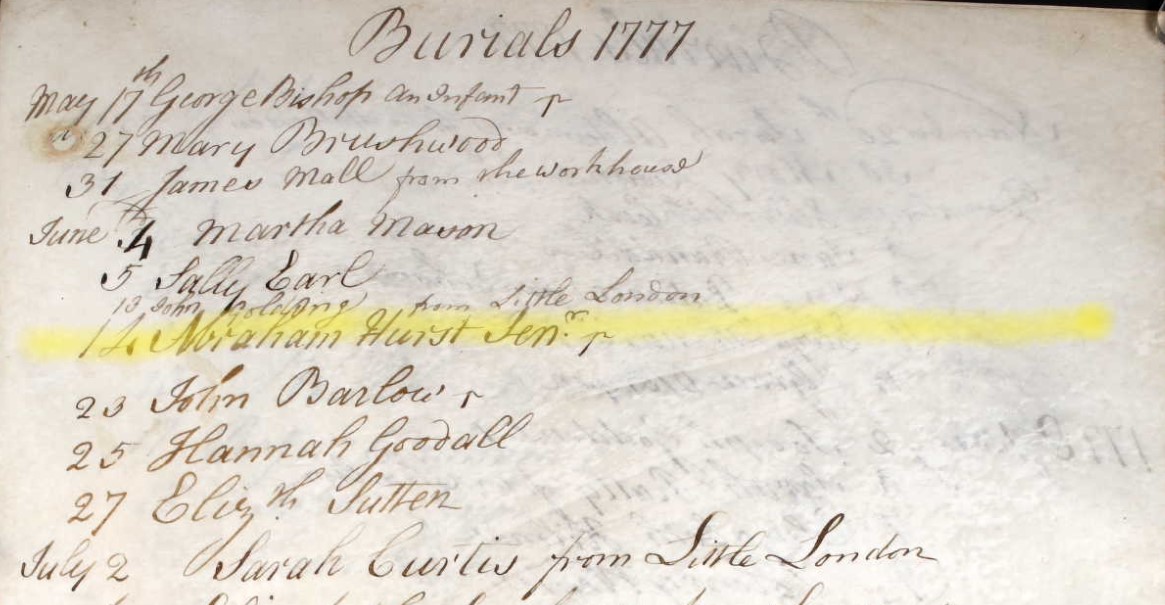 Burials 1777
May 17th George Bishop an Infant p
27 Mary Brushwood
31 James Mall from the workhouse
June 4 Martha Mason
5 Sally Earl
13 John Golding from Little London
Abraham Hurst Senr. p
23 John Barlow
25 Hannah Goodall
27 Elizth Sutten
July 2 Sarah Curtis from Little London